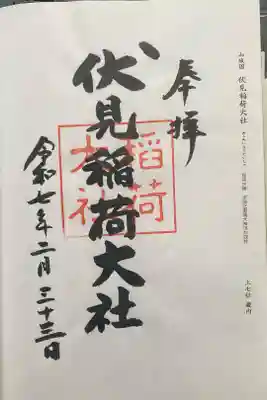 山城國 伏見稲荷大社
上七社 畿内
奉拝
伏見稲荷大社
稲荷
大社
令和七年二月二十三日